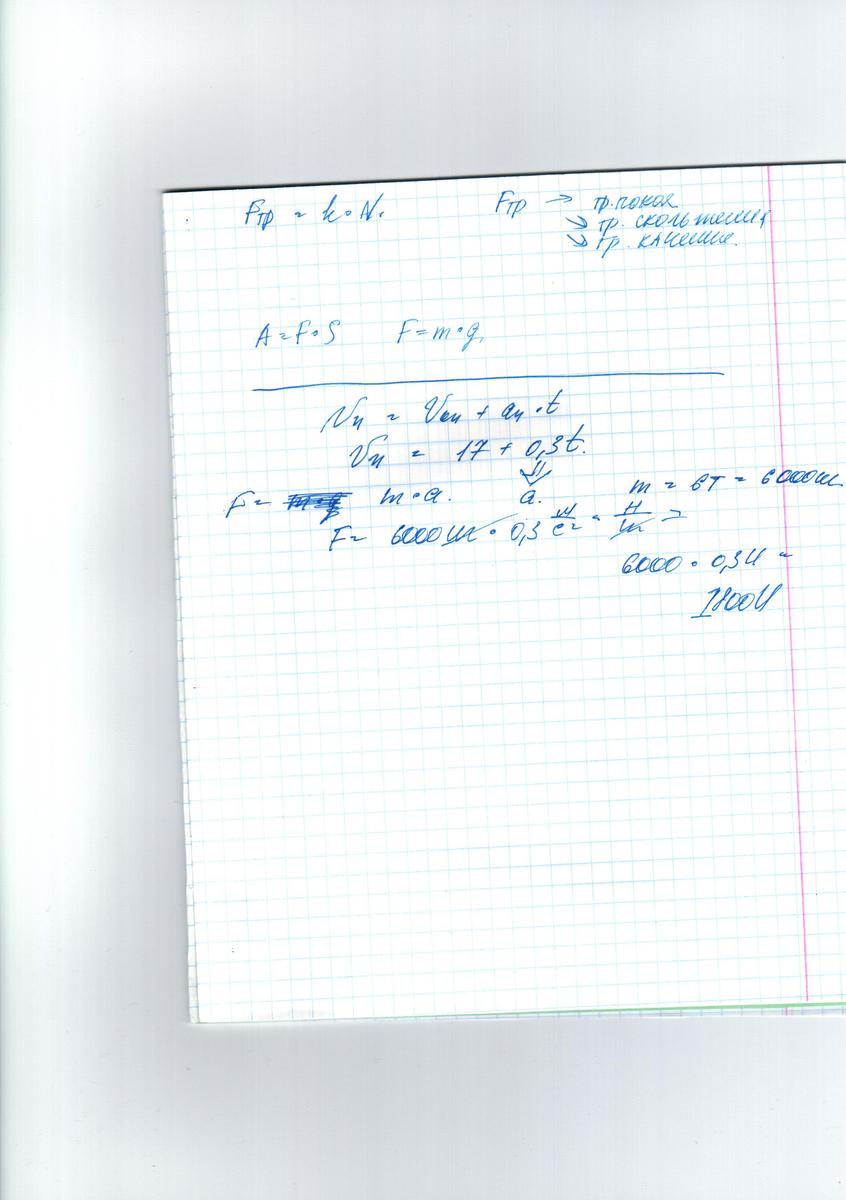 Fтр = k·N.
Fтр → тр. покоя
↘ тр. скольжения
↘ тр. качение.
A = F·S F = m·g,
Vн = Vон + aн·t
Vн = 17 + 0,3t.
⇓
F = m·a. a. m = 6т = 6000кг
F = 6000кг · 0,3 м/с² = Н/кг =
6000 · 0,3Н =
1800Н